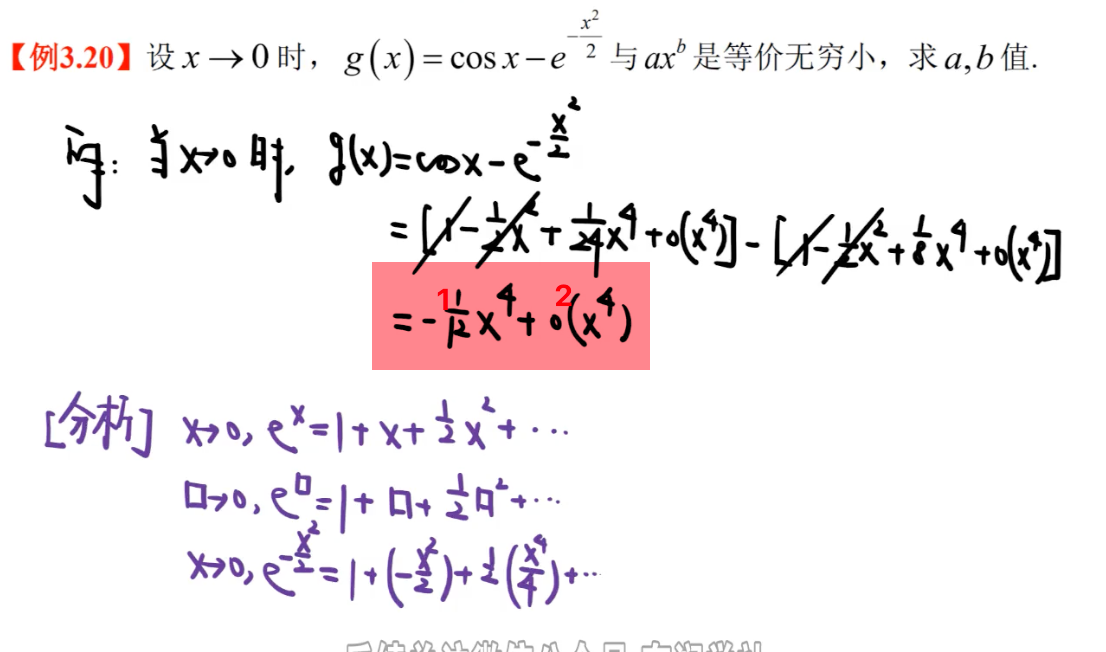 【例3.20】设 x → 0 时, g(x) = cos x − e^{−x²/2} 与 ax^b 是等价无穷小, 求 a, b 值.
当 x→0 时, g(x) = cosx − e^{−x²/2}
= [1 − 1/2 x² + 1/24 x⁴ + o(x⁴)] − [1 − 1/2 x² + 1/8 x⁴ + o(x⁴)]
1 2
= − 1/12 x⁴ + o(x⁴)
[分析] x→0, e^x = 1 + x + 1/2 x² + ⋯
□→0, e^□ = 1 + □ + 1/2 □² + ⋯
x→0, e^{−x²/2} = 1 + (−x²/2) + 1/2 (x⁴/4) + ⋯